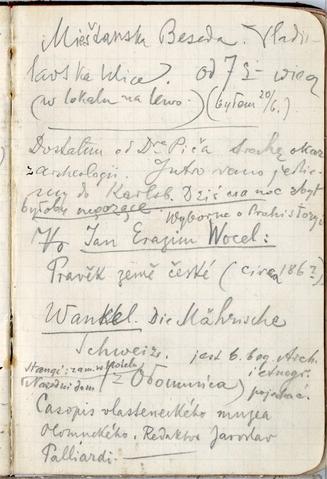 Mieščanska Beseda. Vladis-
lavska Ulice. od 7 g. wiecz
(w lokalu na lewo.) (byłem 20/6.)
Dostałem od Dra Piča trochę okaz
z archeologii. Jutro rano jedzie-
my do Karlsb. Dziś na noc zbyt
byłoby męczące.
Wyborne o Prahistoryi
Jan Erazim Wocel:
Pravěk země české (circa 186?)
Wankel. Die Mährische
Schweiz. jest b. bog. Arch.
i etnogr.
Národni dom
(z Ołomuńca) pojechać.
Časopis vlasteneckého muzea
Olomuckého. Redaktor Jaroslav
Palliardi.